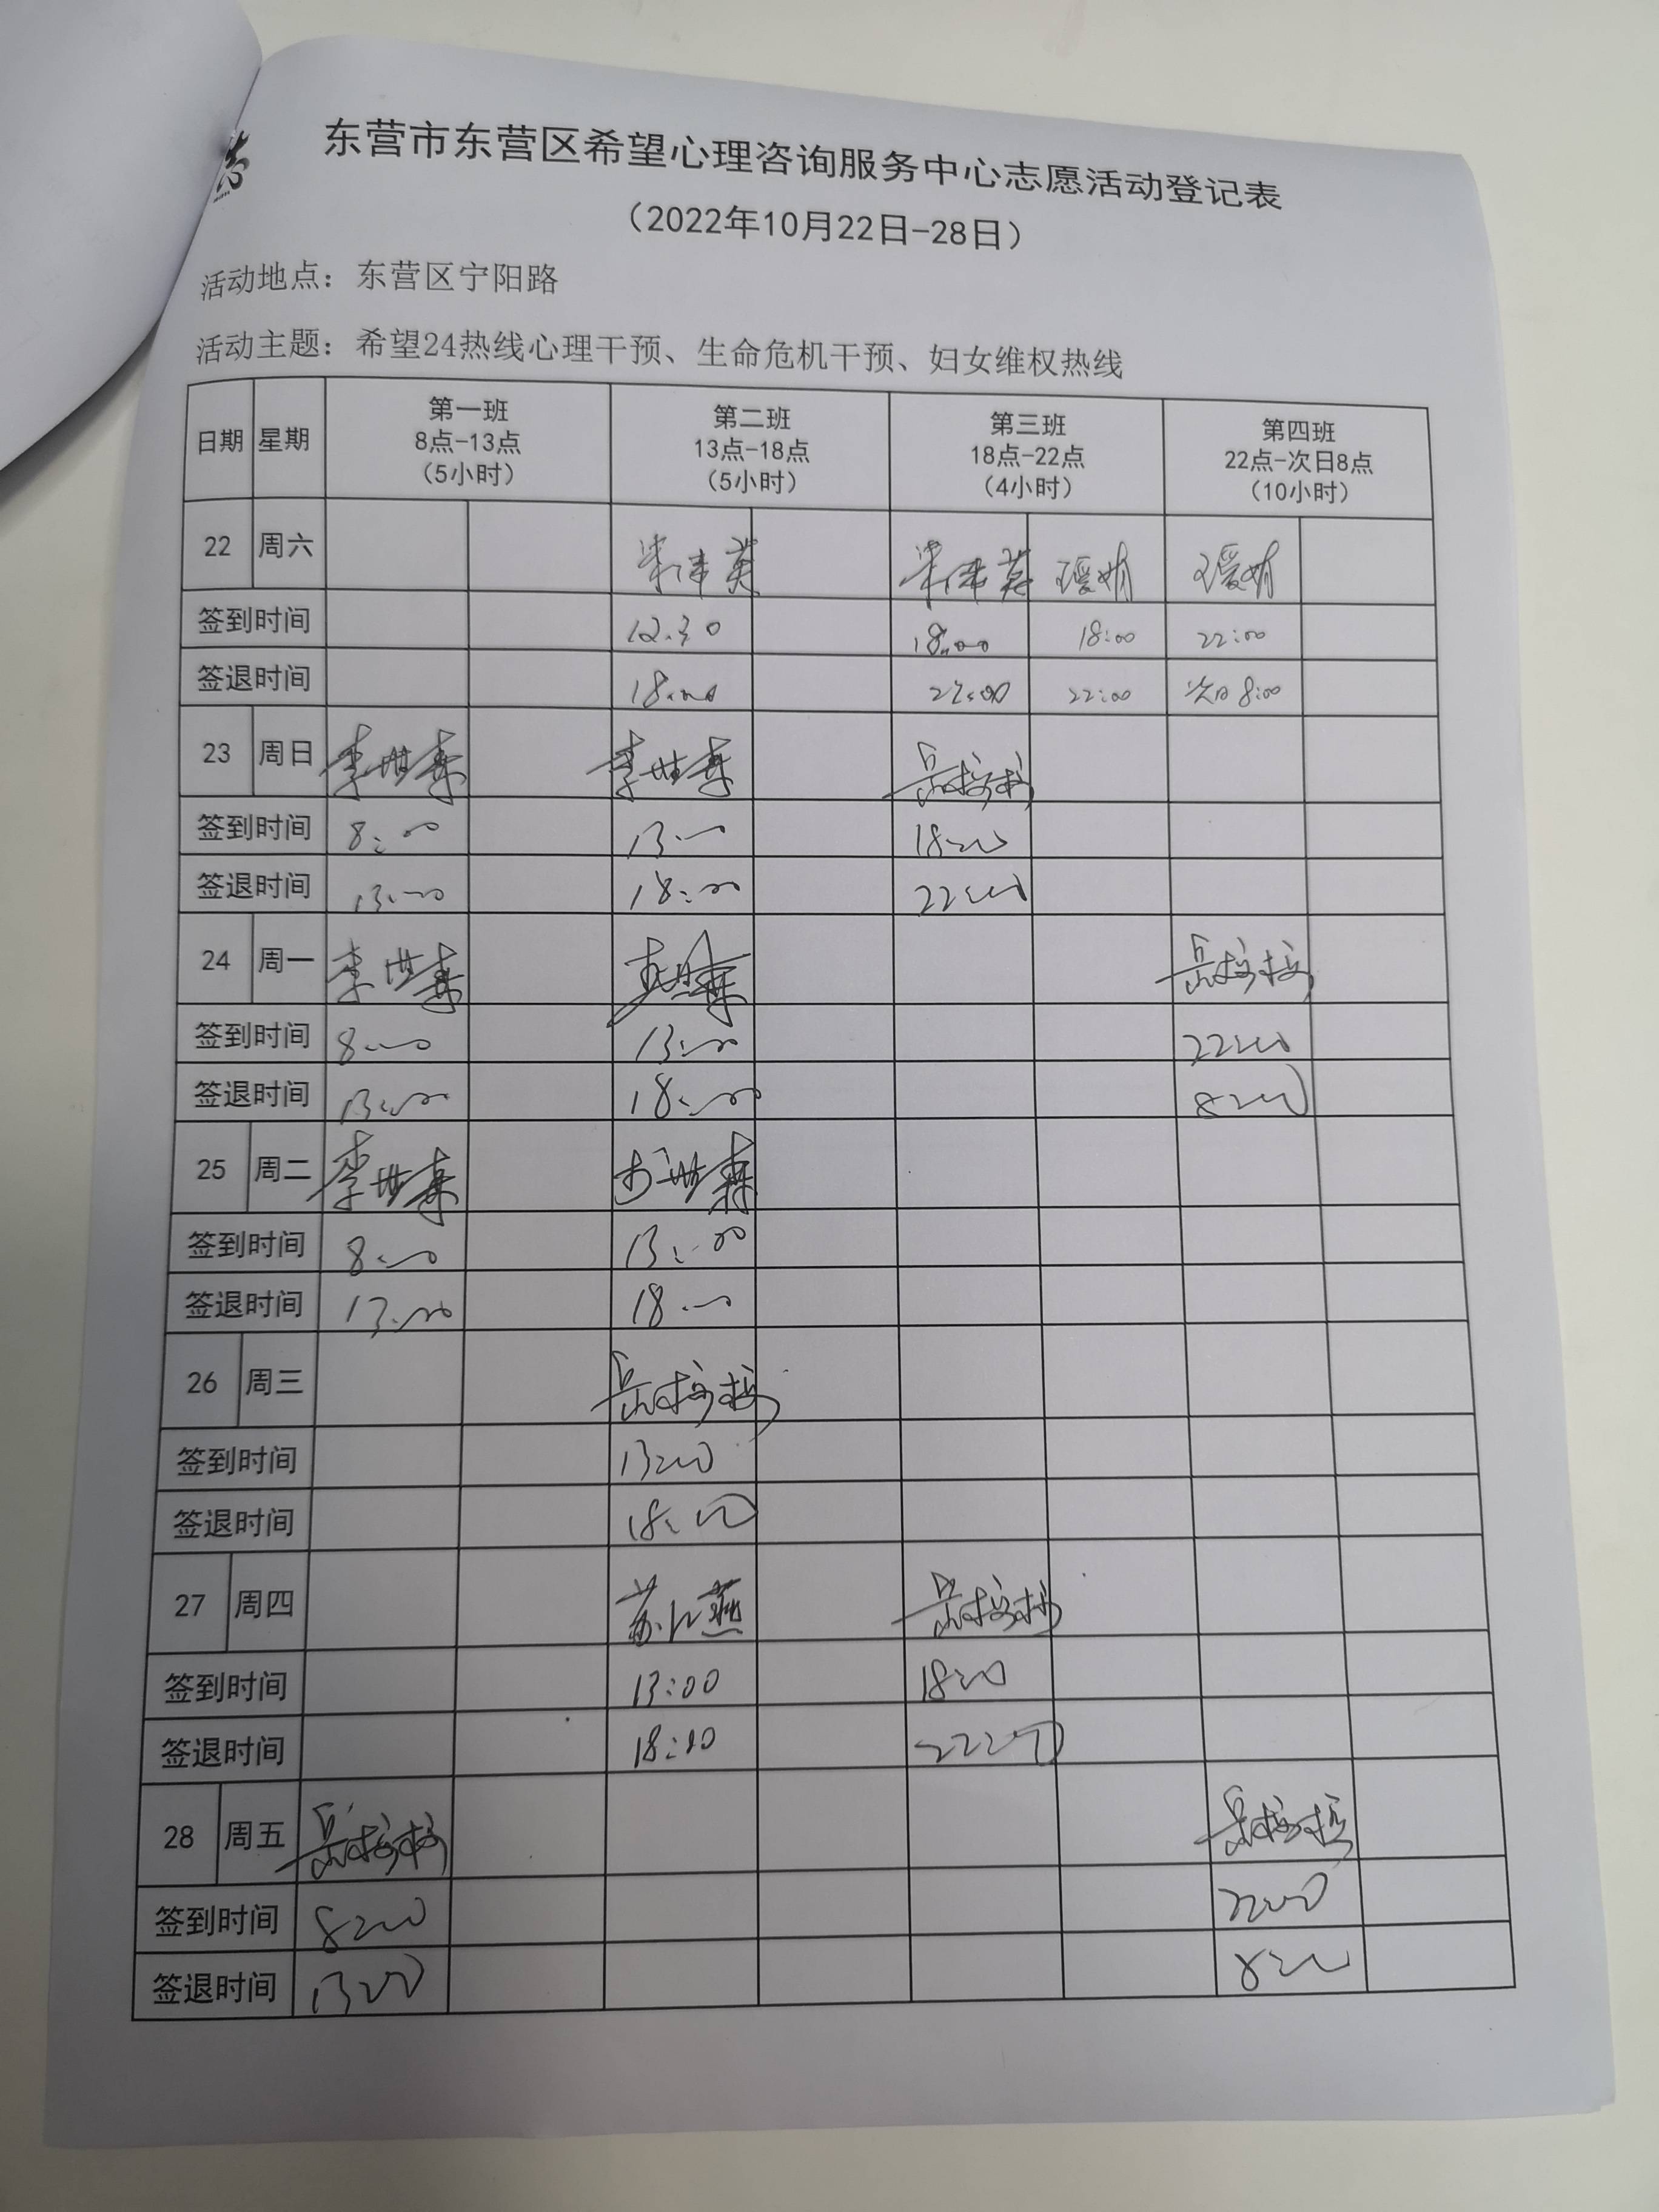 东营市东营区希望心理咨询服务中心志愿活动登记表
（2022年10月22日-28日）
活动地点：东营区宁阳路
活动主题：希望24热线心理干预、生命危机干预、妇女维权热线
日期 星期 第一班 8点-13点 （5小时） 第二班 13点-18点 （5小时） 第三班 18点-22点 （4小时） 第四班 22点-次日8点 （10小时）
22 周六
签到时间 12.30 18:00 18:00 22:00
签退时间 18:00 22:00 22:00 次日8:00
23 周日
签到时间 8:00 13:00 18:00
签退时间 13:00 18:00 22:00
24 周一
签到时间 8:00 13:00 22:00
签退时间 13:00 18:00 8:00
25 周二
签到时间 8:00 13:00
签退时间 13:00 18:00
26 周三
签到时间 13:00
签退时间 18:00
27 周四
签到时间 13:00 18:00
签退时间 18:00 22:00
28 周五
签到时间 8:00 22:00
签退时间 13:00 8:00